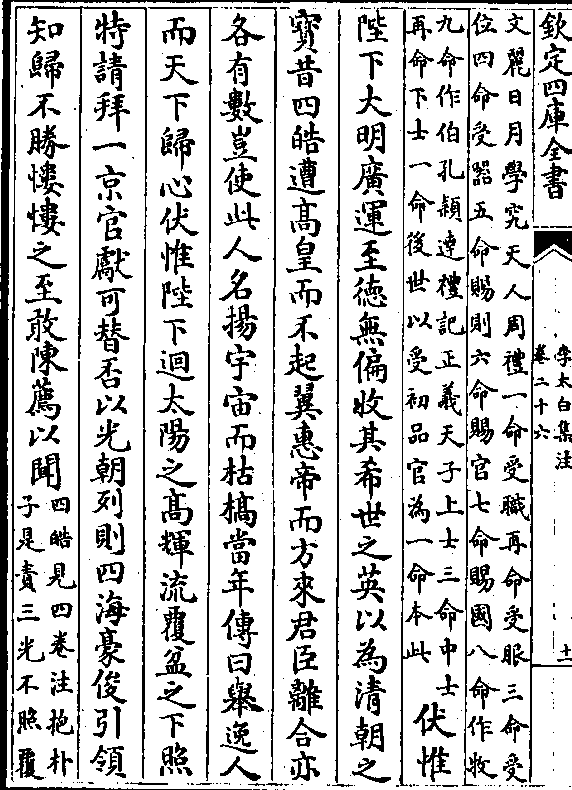 欽定四庫全書
李太白集注
卷二十六
十一
文麗日月學究天人周禮一命受職再命受服三命受
位四命受器五命賜則六命賜官七命賜國八命作牧
九命作伯孔穎達禮記正義天子上士三命中士
再命下士一命後世以受初品官為一命本此
伏惟
陛下大明廣運至德無偏收其希世之英以為清朝之
寳昔四皓遭高皇而不起翼惠帝而方來君臣離合亦
各有數豈使此人名揚宇宙而枯槁當年傳曰舉逸人
而天下歸心伏惟陛下迴太陽之高輝流覆盆之下照
特請拜一京官獻可替否以光朝列則四海豪俊引領
知歸不勝慺慺之至敢陳薦以聞
四皓見四卷注抱朴
子是責三光不照覆